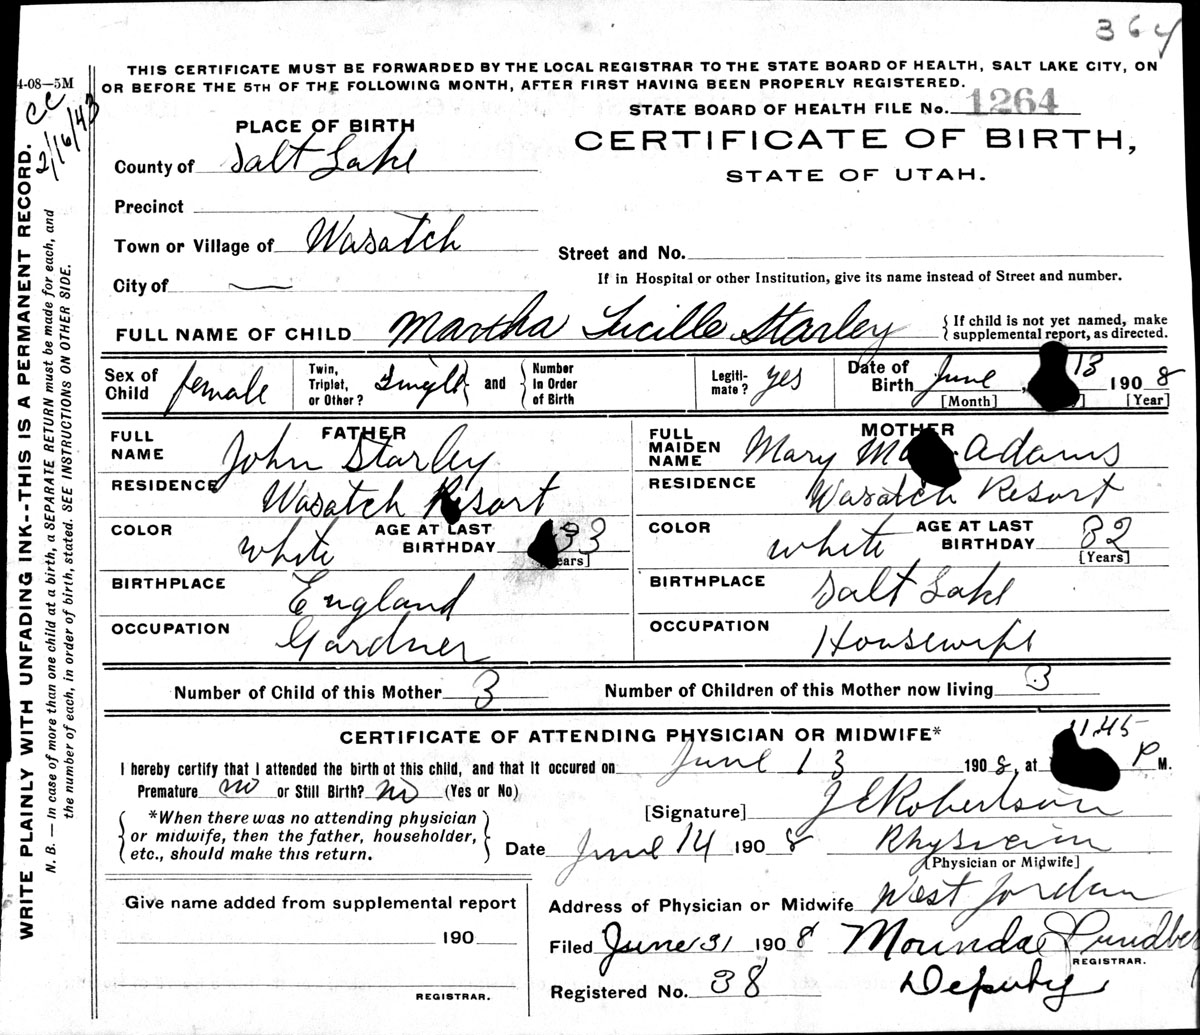 364
4-08—5M
cc 2/16/43
WRITE PLAINLY WITH UNFADING INK--THIS IS A PERMANENT RECORD.
N. B.— In case of more than one child at a birth, a SEPARATE RETURN must be made for each, and
the number of each, in order of birth, stated. SEE INSTRUCTIONS ON OTHER SIDE.
THIS CERTIFICATE MUST BE FORWARDED BY THE LOCAL REGISTRAR TO THE STATE BOARD OF HEALTH, SALT LAKE CITY, ON
OR BEFORE THE 5TH OF THE FOLLOWING MONTH, AFTER FIRST HAVING BEEN PROPERLY REGISTERED.
STATE BOARD OF HEALTH FILE No. 1264
PLACE OF BIRTH
CERTIFICATE OF BIRTH,
STATE OF UTAH.
County of Salt Lake
Precinct
Town or Village of Wasatch
Street and No.
City of —
If in Hospital or other Institution, give its name instead of Street and number.
FULL NAME OF CHILD Martha Lucille Starley
{ If child is not yet named, make
supplemental report, as directed.
Sex of Child female
Twin, Triplet, or Other? Single and { Number In Order of Birth
Legiti-mate? yes
Date of Birth June 13 1908
[Month] [Year]
FATHER
FULL NAME John Starley
RESIDENCE Wasatch Resort
COLOR white AGE AT LAST BIRTHDAY 33
BIRTHPLACE England
OCCUPATION Gardner
MOTHER
FULL MAIDEN NAME Mary Adams
RESIDENCE Wasatch Resort
COLOR white AGE AT LAST BIRTHDAY 32 [Years]
BIRTHPLACE Salt Lake
OCCUPATION Housewife
Number of Child of this Mother 3 Number of Children of this Mother now living 3
CERTIFICATE OF ATTENDING PHYSICIAN OR MIDWIFE*
I hereby certify that I attended the birth of this child, and that it occured on June 13 1908, at 11.45 P M.
Premature no or Still Birth? no (Yes or No)
[Signature] J E Robertson
*When there was no attending physician
or midwife, then the father, householder,
etc., should make this return.
Date June 14 1908 Physician
[Physician or Midwife]
Give name added from supplemental report
190
REGISTRAR.
Address of Physician or Midwife West Jordan
Filed June 31 1908
REGISTRAR.
Registered No. 38 Deputy